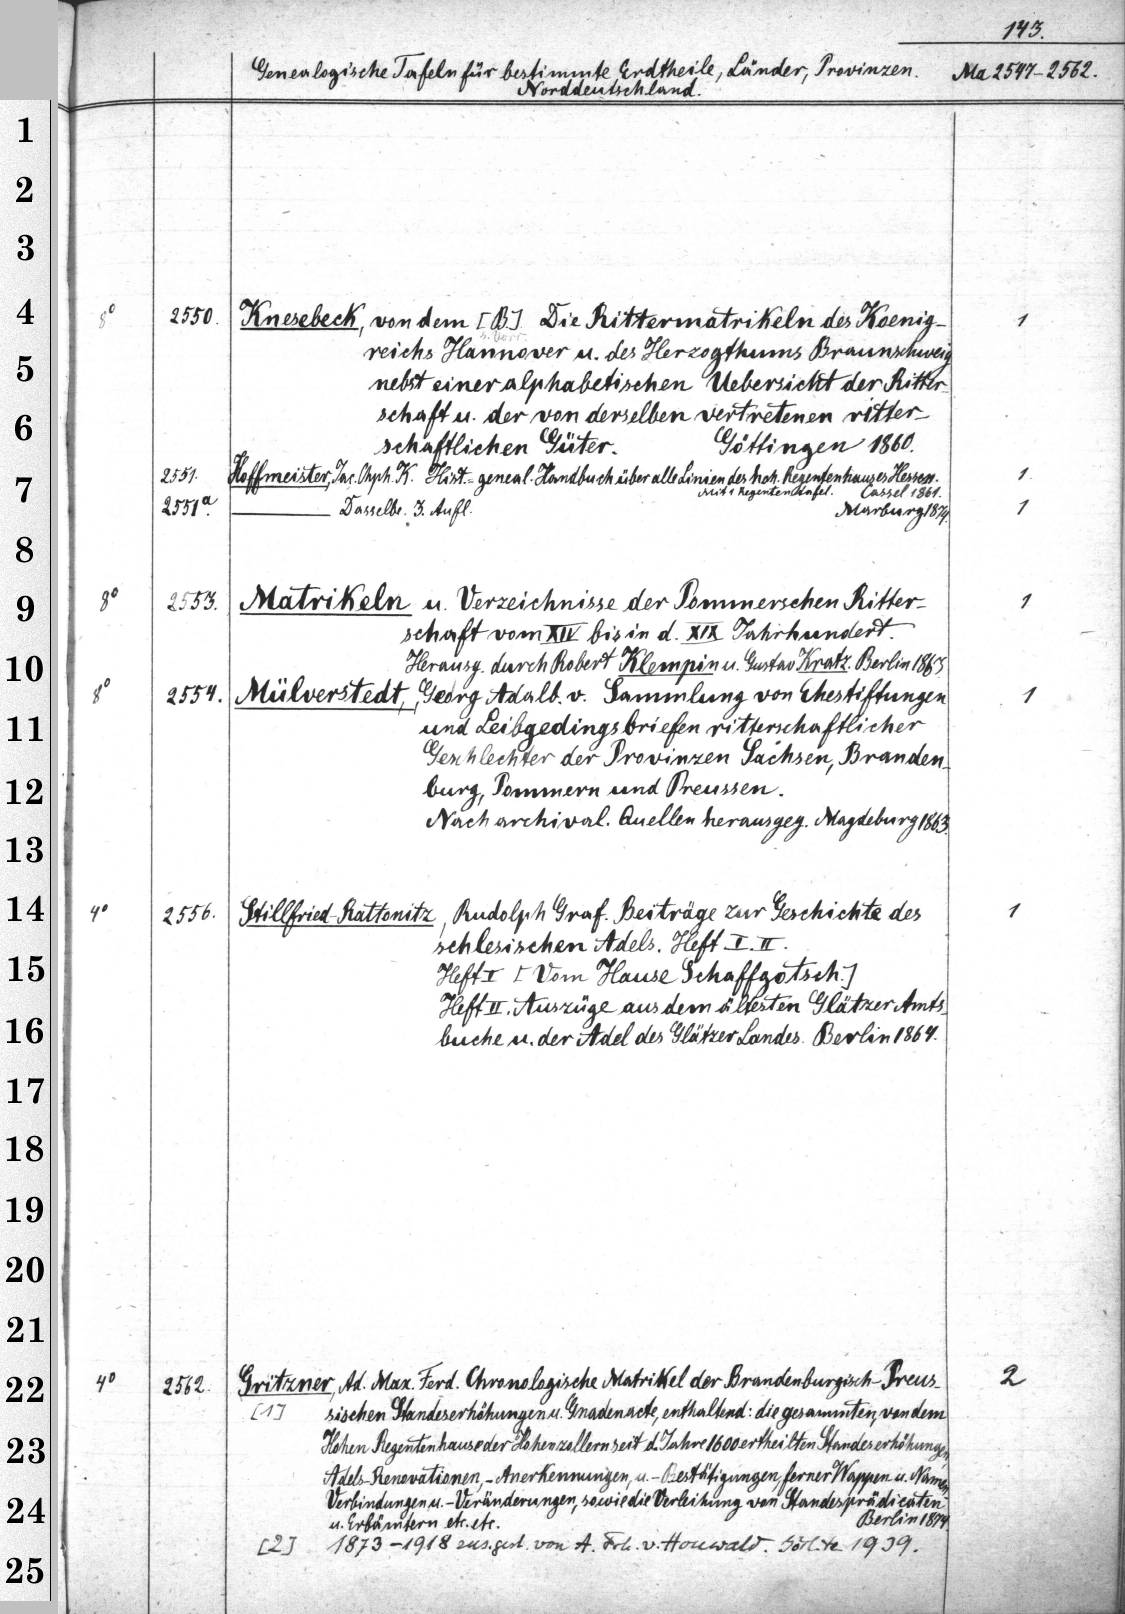 143.
Genealogische Tafeln für bestimmte Erdtheile, Länder, Provinzen. Ma 2547-2562.
Norddeutschland.
1
2
3
4 8° 2550. Knesebeck, von dem [B.] Die Rittermatrikeln des Koenig- 1
s. Vorr.
5 reichs Hannover u. des Herzogthums Braunschweig
nebst einer alphabetischen Uebersicht der Ritter-
6 schaft u. der von derselben vertretenen ritter-
schaftlichen Güter. Göttingen 1860.
7 2551. Hoffmeister, Jac. Chph. K. Hist.-geneal. Handbuch über alle Linien des hoh. Regentenhauses Hessen. 1
Mit 1 Regententafel. Cassel 1861.
2551a. Dasselbe. 3. Aufl. Marburg 1874. 1
8
9 8° 2553. Matrikeln u. Verzeichnisse der Pommerschen Ritter- 1
schaft vom XIV bis in d. XIX Jahrhundert.
10 Herausg. durch Robert Klempin u. Gustav Kratz. Berlin 1863
8° 2554. Mülverstedt, Georg Adalb. v. Sammlung von Ehestiftungen 1
11 und Leibgedingsbriefen ritterschaftlicher
Geschlechter der Provinzen Sachsen, Branden-
12 burg, Pommern und Preussen.
Nach archival. Quellen herausgeg. Magdeburg 1863.
13
14 4° 2556. Stillfried-Rattonitz, Rudolph Graf. Beiträge zur Geschichte des 1
schlesischen Adels. Heft I. II.
15 Heft I [Vom Hause Schaffgotsch.]
Heft II. Auszüge aus dem ältesten Glätzer Amts-
16 buche u. der Adel des Glätzer Landes. Berlin 1864.
17
18
19
20
21
22 4° 2562. Gritzner, Ad. Max. Ferd. Chronologische Matrikel der Brandenburgisch-Preus- 2
[1] sischen Standeserhöhungen u. Gnadenacte, enthaltend: die gesammten, von dem
23 Hohen Regentenhause der Hohenzollern seit d. Jahre 1600 ertheilten Standeserhöhungen,
Adels-Renovationen, -Anerkennungen, u. -Bestätigungen, ferner Wappen u. Namen,
24 Verbindungen u. -Veränderungen, sowie die Verleihung von Standesprädicaten
u. Erbämtern etc. etc. Berlin 1874.
[2] 1873-1918 zus.gest. von A. Frh. v. Houwald. Görlitz 1939.
25